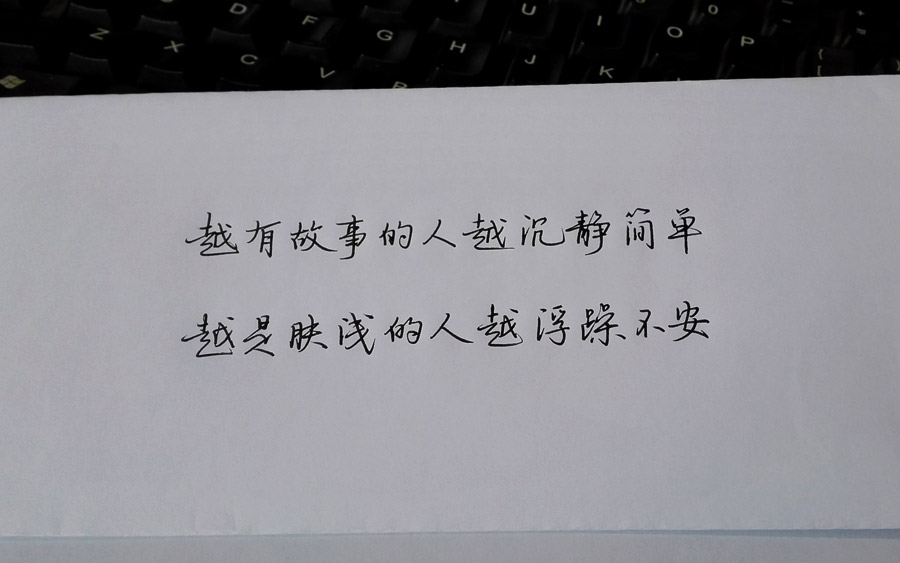 Z X D C F V G B H U J I K O P
越有故事的人越沉静简单
越是肤浅的人越浮躁不安